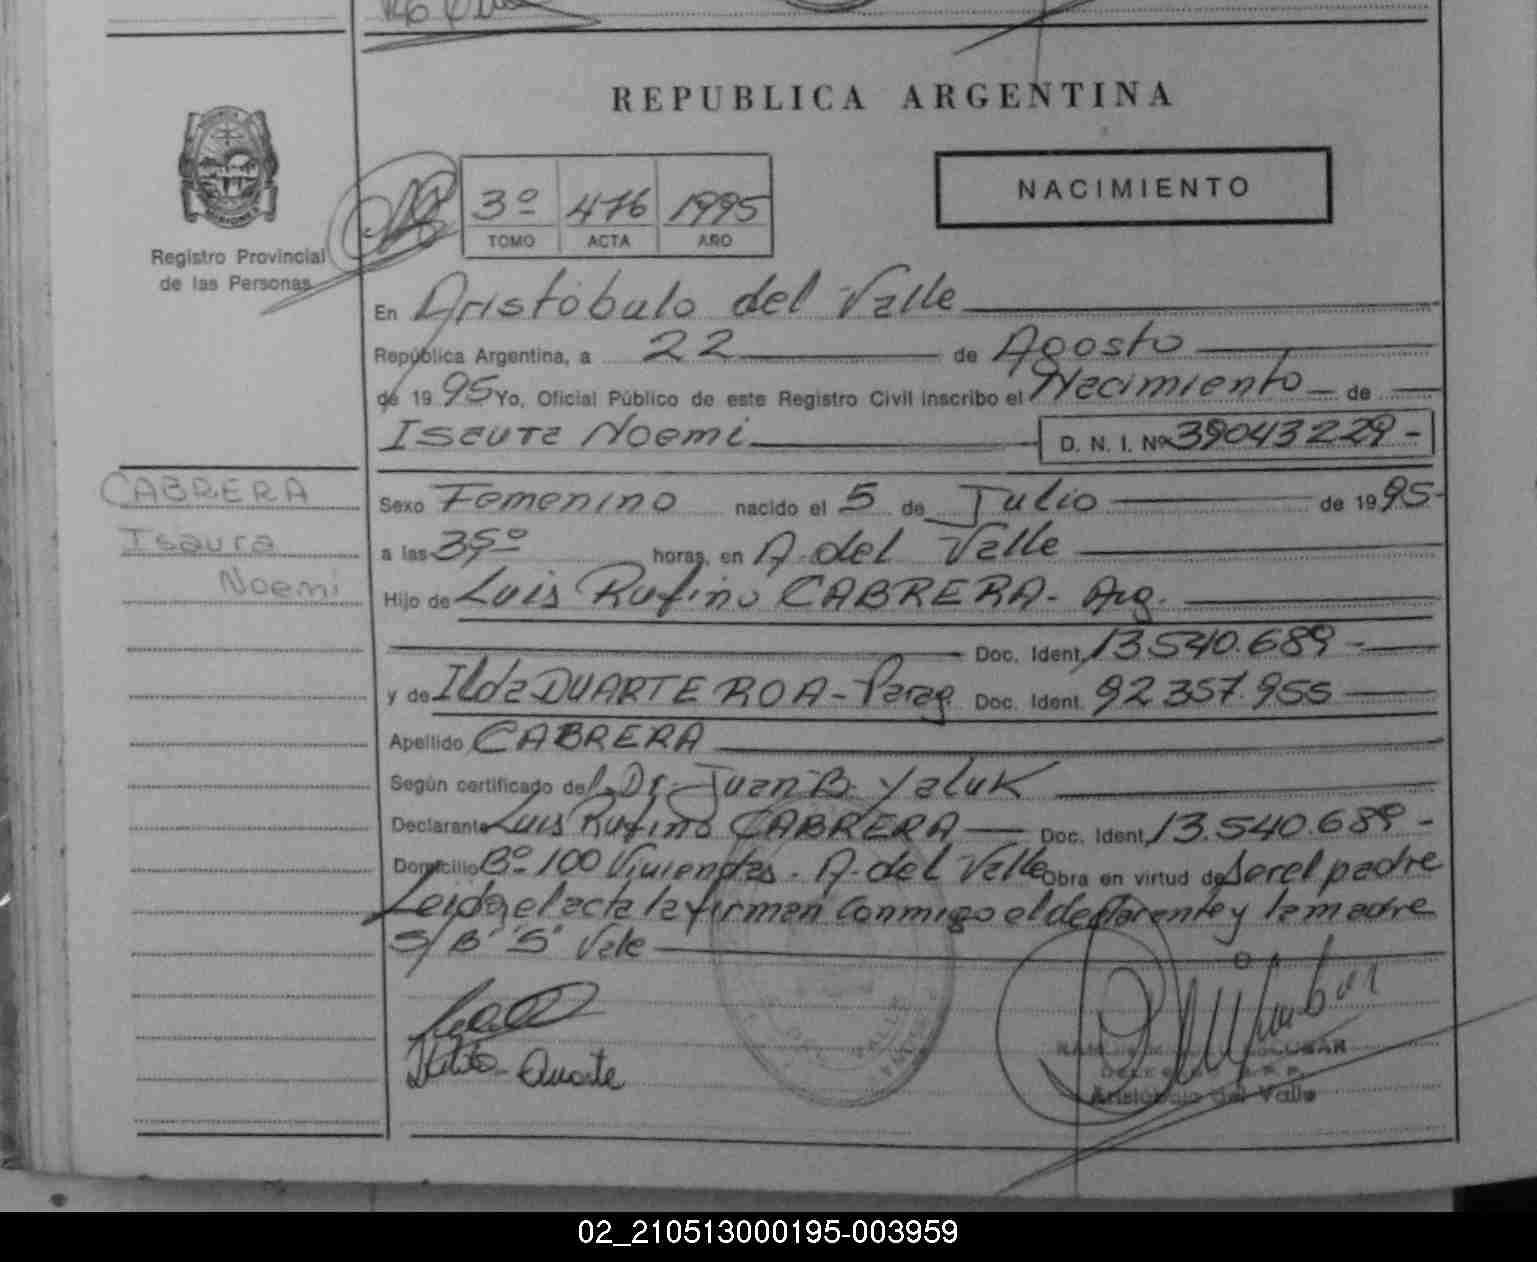 REPUBLICA ARGENTINA
NACIMIENTO
3º 476 1995
TOMO ACTA AÑO
Registro Provincial
de las Personas
En Aristóbulo del Valle
República Argentina, a 22 de Agosto
de 1995 Yo, Oficial Público de este Registro Civil inscribo el Nacimiento de
Isaura Noemi D. N. I. Nº 39043229-
CABRERA
Isaura
Noemi
Sexo Femenino nacido el 5 de Julio de 1995-
a las horas, en A. del Valle
Hijo de Luis Rufino CABRERA- Arg.
Doc. Ident. 13.540.689-
y de Ilda DUARTE ROA- Parag. Doc. Ident. 92.357.955
Apellido CABRERA
Según certificado del Dr. Juan B. Yaluk
Declarante Luis Rufino CABRERA Doc. Ident. 13.540.689-
Domicilio Bº 100 Viviendas. A. del Valle Obra en virtud de Ser el padre
Leida el acta la firman conmigo el declarante y la madre
S/B "S" Vale
Duarte
DEL VALLE
ESCOBAR
Aristóbulo del Valle
02_210513000195-003959